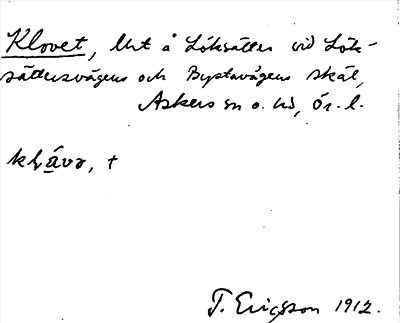 Klovet, lht å Löksätter vid Lök-
sättersvägens och Bystavägens skäl,
Askers sn o. hd, Ör. l.
klå̱və, +
T. Ericsson 1912.